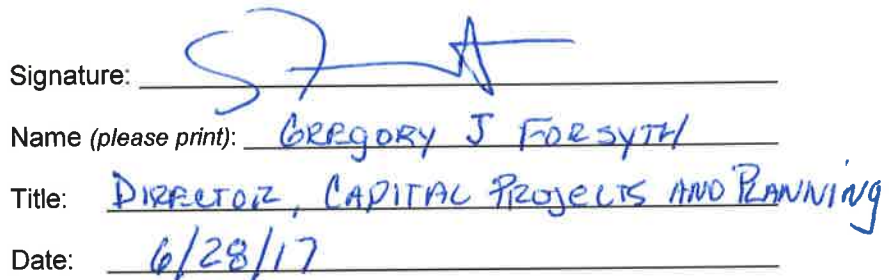 Signature:
Name (please print): GREGORY J FORSYTH
Title: DIRECTOR, CAPITAL PROJECTS AND PLANNING
Date: 6/28/17